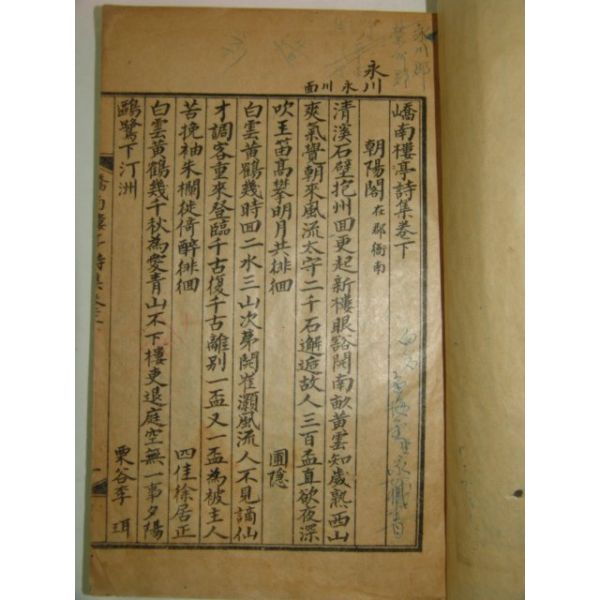 永川郡
永川
永川面
嶠南樓亭詩集卷下
朝陽閣 在郡衙南
清溪石壁抱州回更起新樓眼豁開南畝黃雲知歲熟西山
爽氣覺朝來風流太守二千石邂逅故人三百盃直欲夜深
吹玉笛高攀明月共徘徊 圃隱
白雲黃鶴幾時回二水三山次第開崔灝風流人不見謫仙
才調客重來登臨千古復千古離別一盃又一盃為被主人
苦挽袖朱欄徙倚醉徘徊 四佳徐居正
白雲黃鶴幾千秋為愛青山不下樓更退庭空無一事夕陽
鷗鷺下汀洲 栗谷李珥
嶠南樓亭詩集卷下